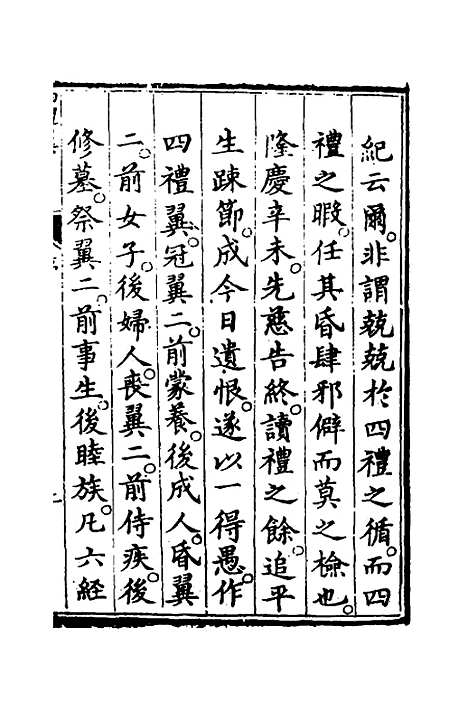 紀云爾。非謂兢兢於四禮之循。而四
禮之暇。任其昏肆邪僻而莫之檢也。
隆慶辛未。先慈告終。讀禮之餘。追平
生踈節。成今日遺恨。遂以一得愚。作
四禮翼。冠翼二。前蒙養。後成人。昏翼
二。前女子。後婦人。喪翼二。前侍疾。後
修墓。祭翼二。前事生。後睦族。凡六經